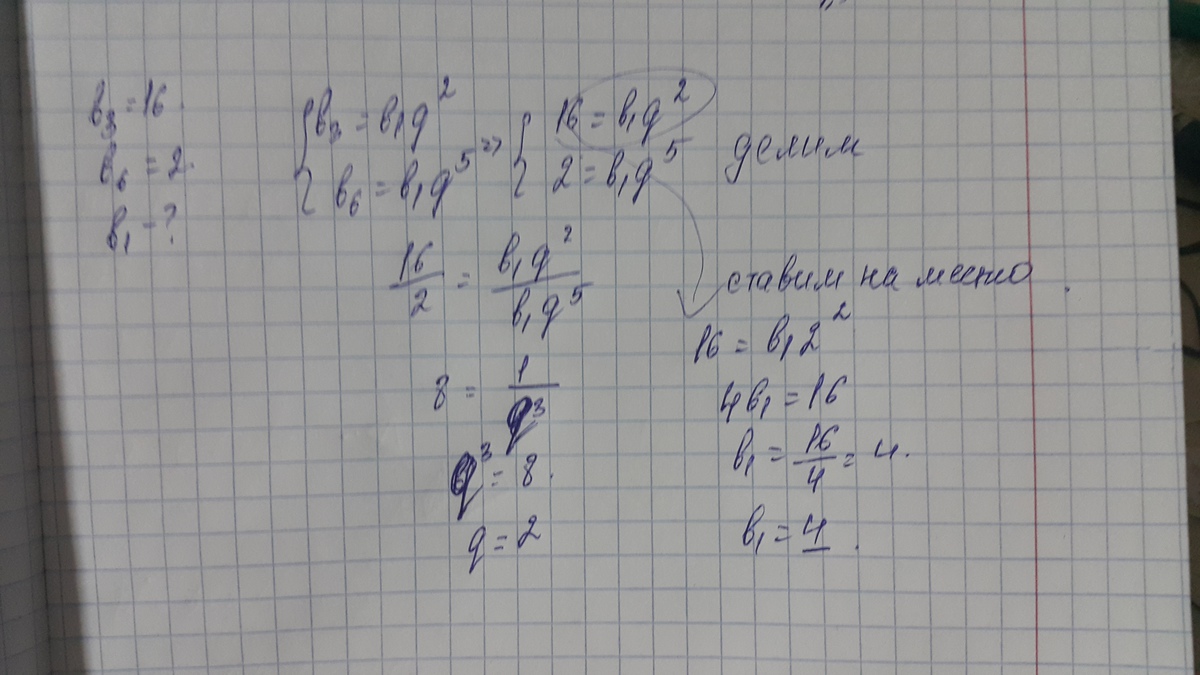 b₃ = 16.
b₆ = 2.
b₁ - ?
{ b₃ = b₁q²
b₆ = b₁q⁵ =>
{ 16 = b₁q²
2 = b₁q⁵
делим
16/2 = b₁q²/b₁q⁵
8 = 1/q³
q³ = 8.
q = 2
ставим на место.
16 = b₁2²
4b₁ = 16
b₁ = 16/4 = 4.
b₁ = 4.